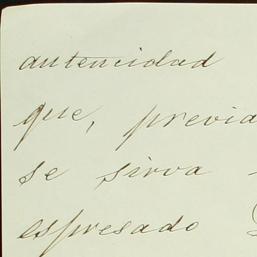 autencidad
que, previa
se sirva
espresado